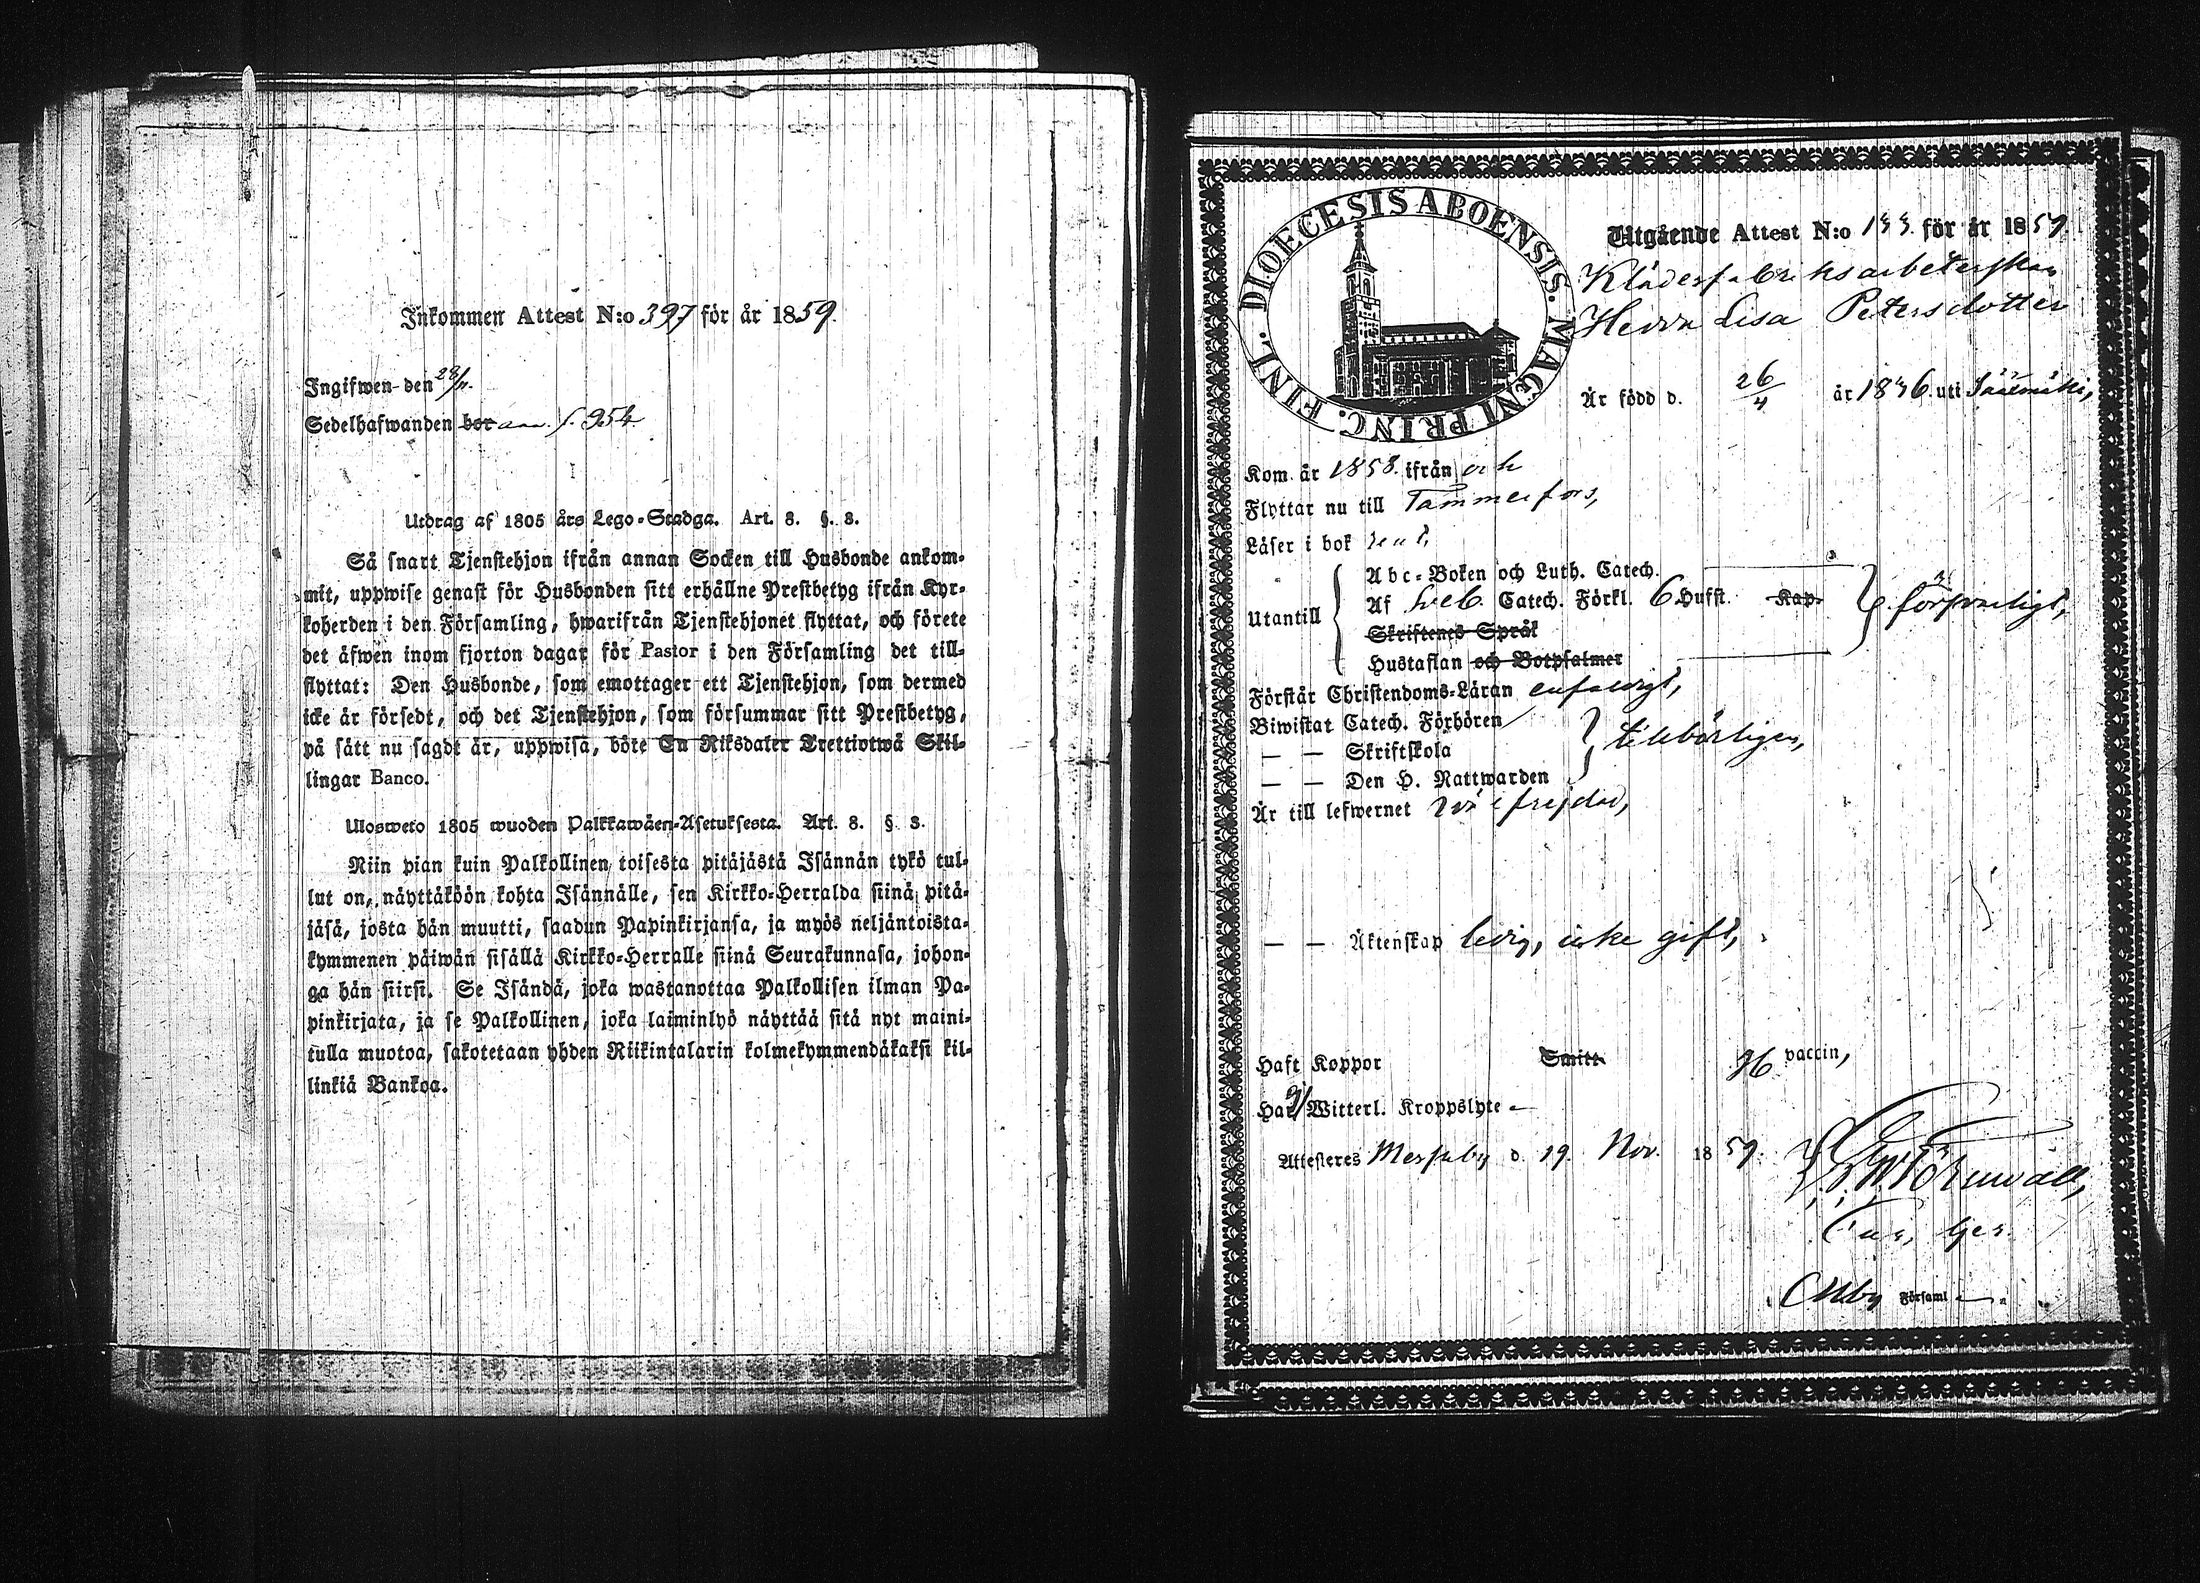 Inkommen Attest N:o 397 för år 1859.
Ingifwen den 28/11.
Sedelhafwanden bor f. 954
Utdrag af 1805 års Lego-Stadga. Art. 8. §. 3.
Så snart Tjenstehjon ifrån annan Socken till Husbonde ankom-
mit, uppwise genast för Husbonden sitt erhållne Prestbetyg ifrån Kyr-
koherden i den Församling, hwarifrån Tjenstehjonet flyttat, och förete
det äfwen inom fjorton dagar för Pastor i den Församling det till-
flyttat: Den Husbonde, som emottager ett Tjenstehjon, som dermed
icke är försedt, och det Tjenstehjon, som försummar sitt Prestbetyg,
på sätt nu sagdt är, uppwisa, böte En Riksdaler Trettiotwå Skil-
lingar Banco.
Ulosweto 1805 wuoden Palkkawäen-Asetuksesta. Art. 8. § 3.
Niin pian kuin Palkollinen toisesta pitäjästä Isännän tykö tul-
lut on, näyttäköön kohta Isännälle, sen Kirkko-Herralda siinä pitä-
jäsä, josta hän muutti, saadun Papinkirjansa, ja myös neljäntoista-
kymmenen päiwän sisällä Kirkko-Herralle siinä Seurakunnasa, johon-
ga hän siirsi. Se Isändä, joka wastanottaa Palkollisen ilman Pa-
pinkirjata, ja se Palkollinen, joka laiminlyö näyttää sitä nyt maini-
tulla muotoa, sakotetaan yhden Riikintalarin kolmekymmendäkaksi kil-
linkiä Bankoa.
DIOECESIS ABOENSIS. MAGNI PRINC. FINL.
Utgående Attest N:o 133. för år 1859
Klädesfabriksarbeterskan
Hedda Lisa Petersdotter
Är född d. 26/4 år 1836 uti Sääksmäki,
Kom år 1858. ifrån och
Flyttar nu till Tammerfors,
Läser i bok rent,
Utantill
Abc-Boken och Luth. Catech.
Af Sveb. Catech. Förkl. 6 Hufst. Kap.
Skriftenes Språk
Hustaflan och Botpsalmer
försvarligt,
Förstår Christendoms-Läran enfaldigt,
Biwistat Catech. Förhören
— — Skriftskola
— — Den H. Nattwarden
tillbörligen,
Är till lefwernet väl frejdad,
— — Äktenskap ledig, icke gift,
Haft Koppor Smitt vaccin,
Har Witterl. Kroppslyte —
Attesteres Messuby d. 19. Nov. 1859.
Törnwall,
Församl